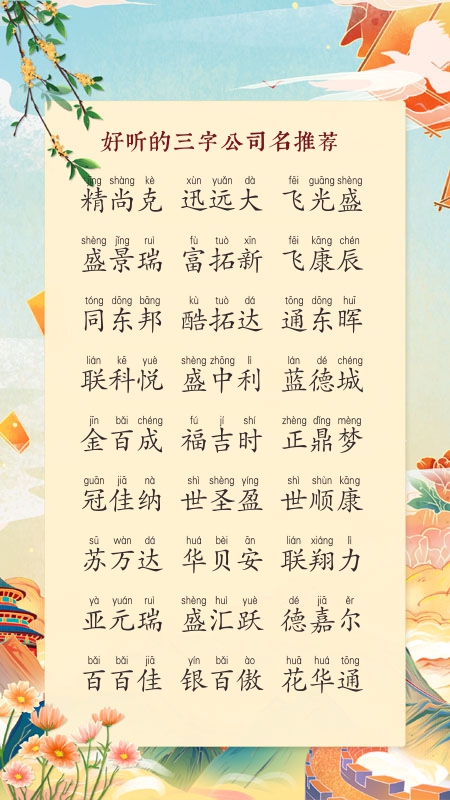 好听的三字公司名推荐
jīng shàng kè xùn yuǎn dà fēi guāng shèng
精尚克 迅远大 飞光盛
shèng jǐng ruì fù tuò xīn fēi kāng chén
盛景瑞 富拓新 飞康辰
tóng dōng bāng kù tuò dá tōng dōng huī
同东邦 酷拓达 通东晖
lián kē yuè shèng zhōng lì lán dé chéng
联科悦 盛中利 蓝德城
jīn bǎi chéng fú jí shí zhèng dǐng mèng
金百成 福吉时 正鼎梦
guān jiā nà shì shèng yíng shì shùn kāng
冠佳纳 世圣盈 世顺康
sū wàn dá huá bèi ān lián xiáng lì
苏万达 华贝安 联翔力
yà yuán ruì shèng huì yuè dé jiā ěr
亚元瑞 盛汇跃 德嘉尔
bǎi bǎi jiā yín bǎi ào huā huá tōng
百百佳 银百傲 花华通